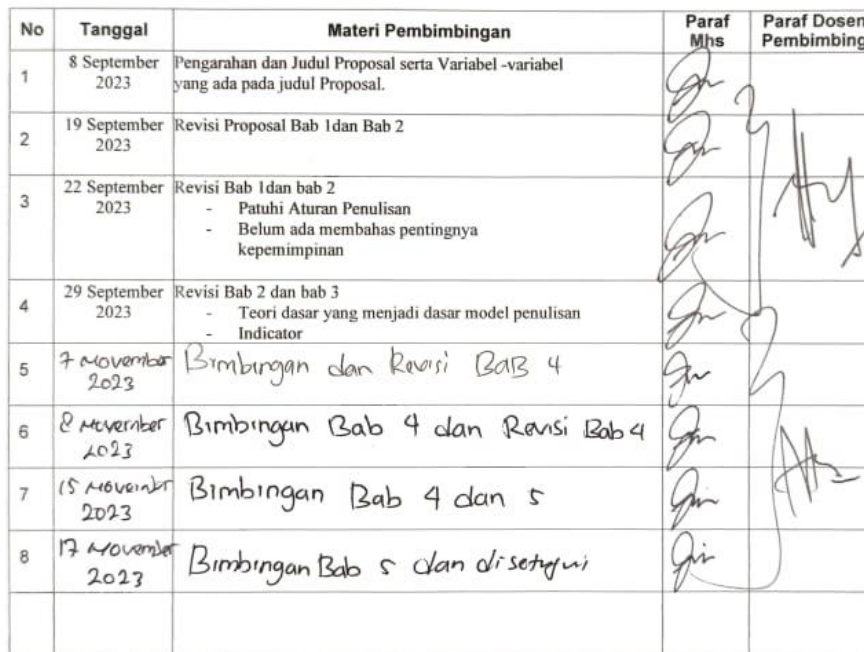 No Tanggal Materi Pembimbingan Paraf Mhs Paraf Dosen Pembimbing
1 8 September 2023 Pengarahan dan Judul Proposal serta Variabel -variabel
yang ada pada judul Proposal.
2 19 September 2023 Revisi Proposal Bab 1dan Bab 2
3 22 September 2023 Revisi Bab 1dan bab 2
- Patuhi Aturan Penulisan
- Belum ada membahas pentingnya
kepemimpinan
4 29 September 2023 Revisi Bab 2 dan bab 3
- Teori dasar yang menjadi dasar model penulisan
- Indicator
5 7 November 2023 Bimbingan dan Revisi BAB 4
6 8 November 2023 Bimbingan Bab 4 dan Revisi Bab 4
7 15 November 2023 Bimbingan Bab 4 dan 5
8 17 November 2023 Bimbingan Bab 5 dan disetujui